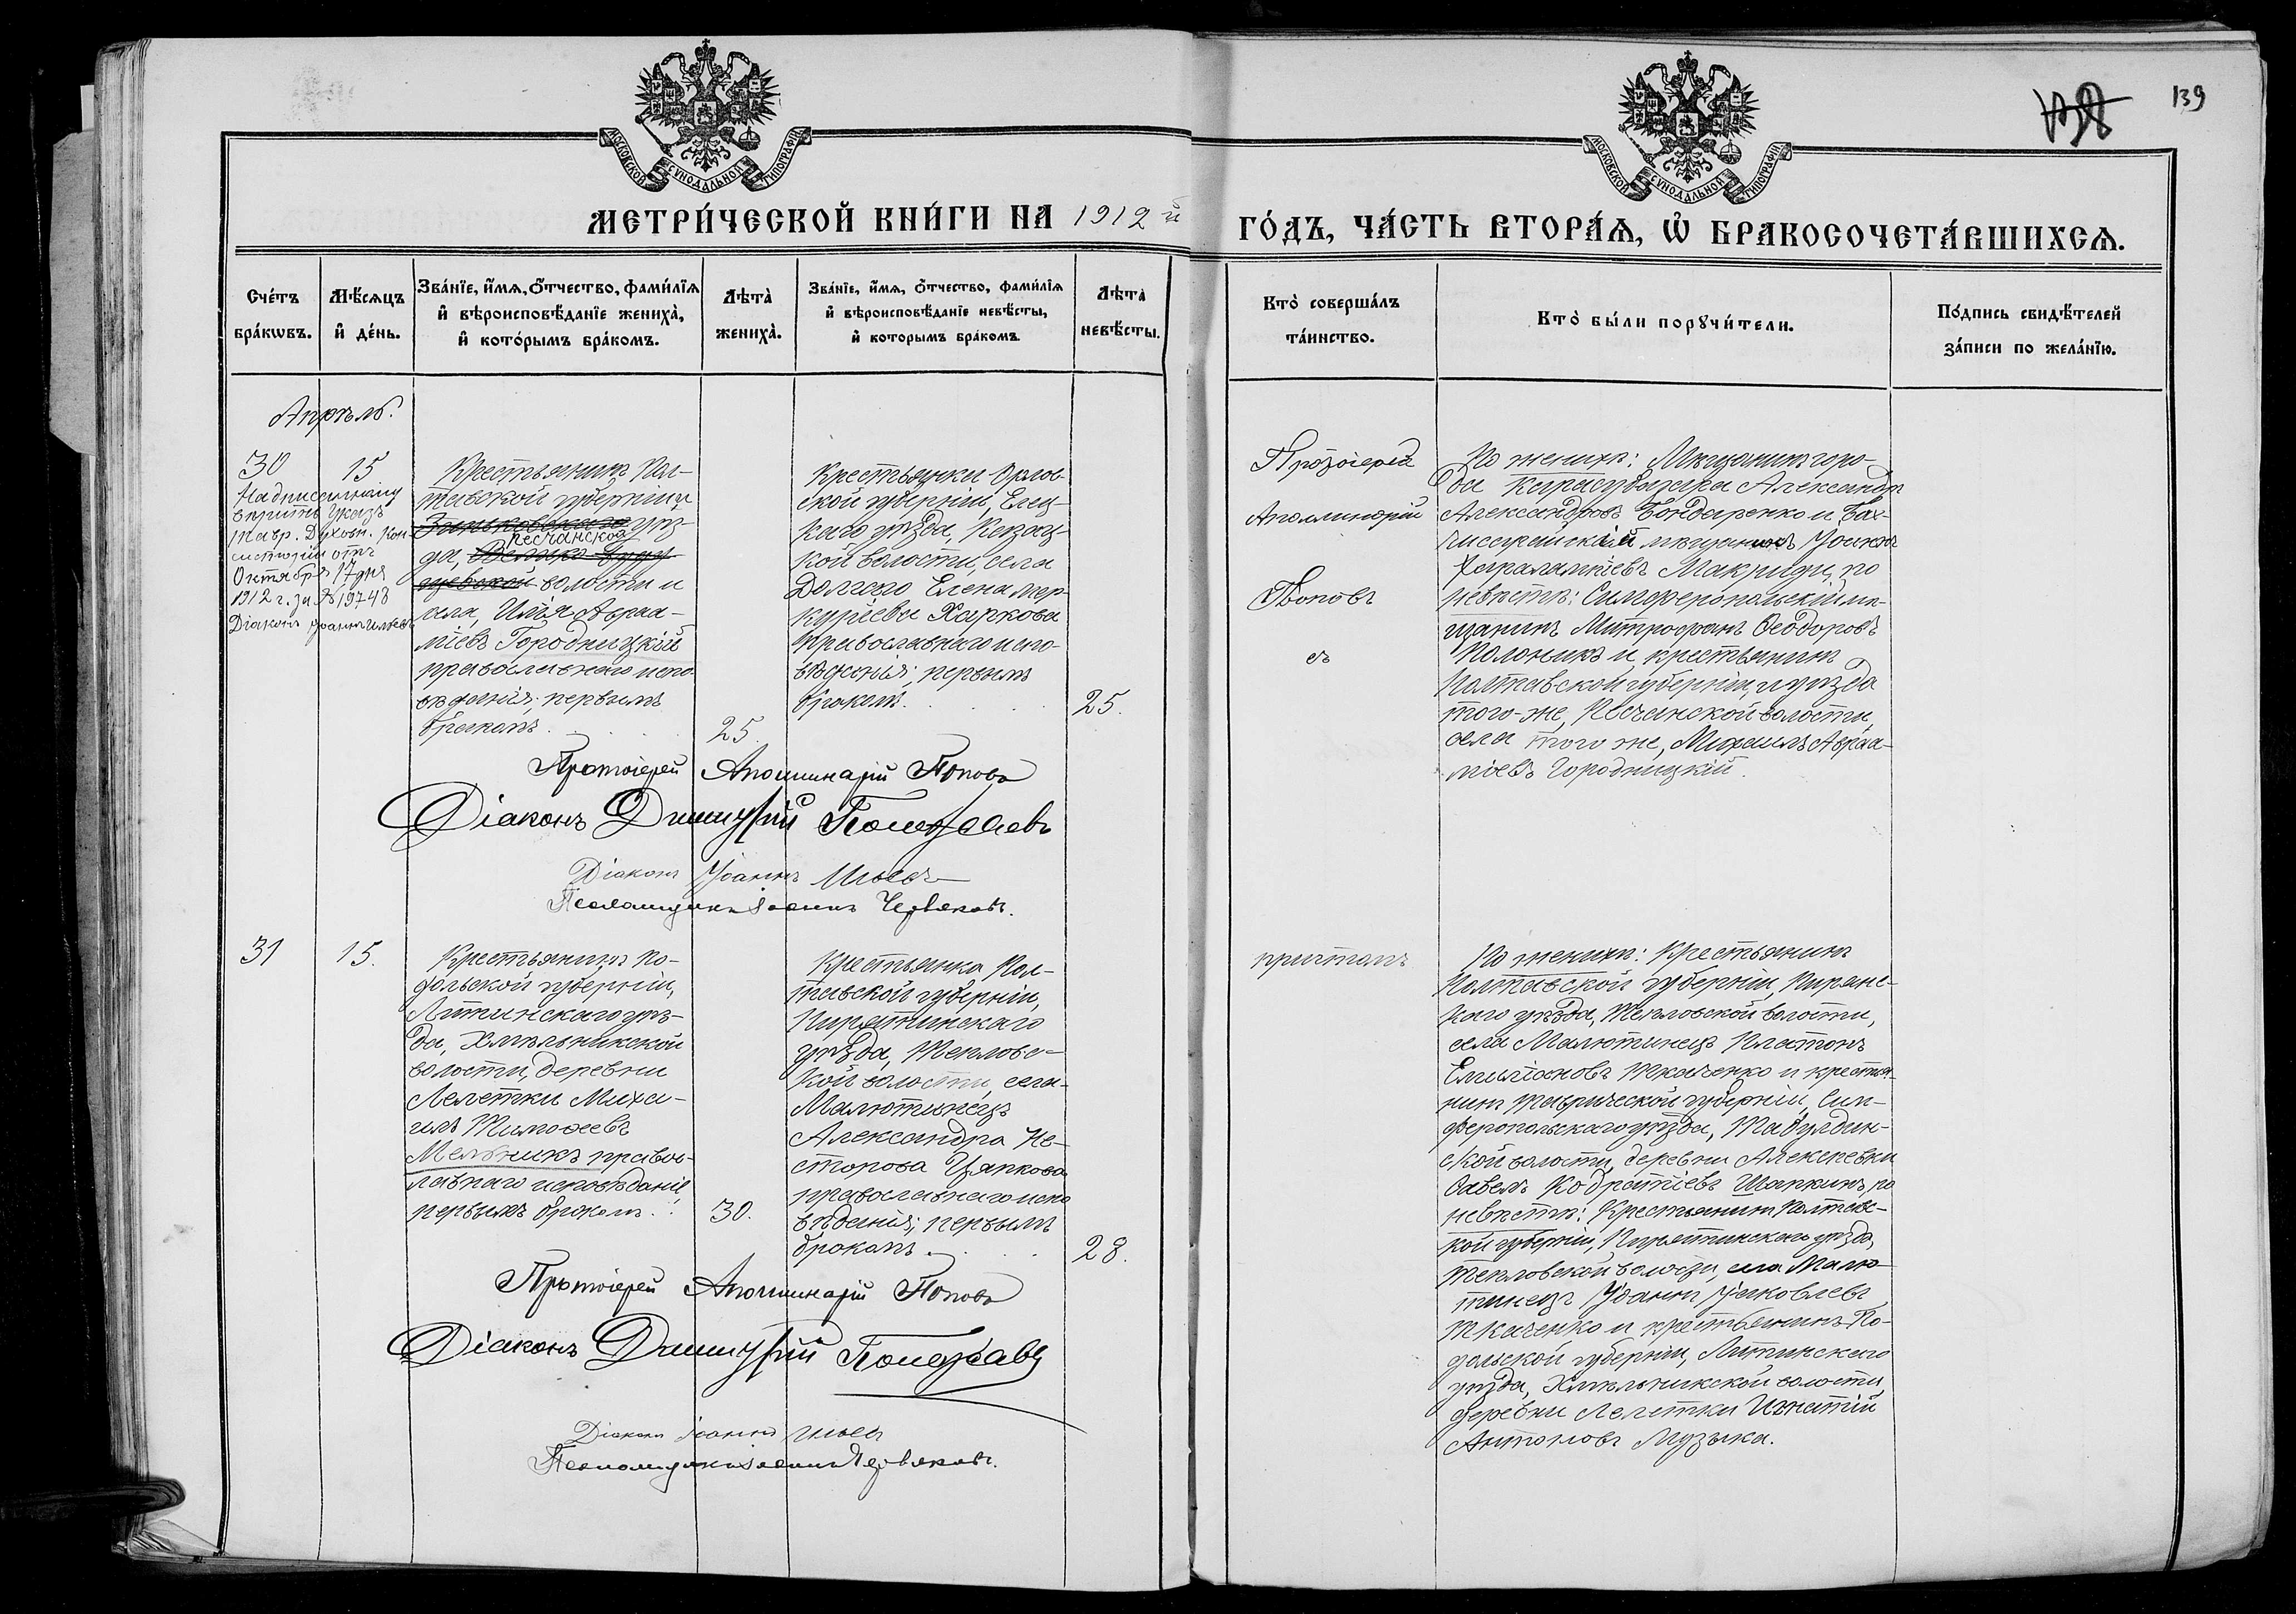 138
139
МОСКОВСКОЙ СѴНОДАЛЬНОЙ ТИПОГРАФІИ
МОСКОВСКОЙ СѴНОДАЛЬНОЙ ТИПОГРАФІИ
МЕТРИ́ЧЕСКОЙ КНИ́ГИ НА 1912 й
ГО́ДЪ, ЧА́СТЬ ВТОРА́Я, Ѽ БРАКОСОЧЕТА́ВШИХСЯ.
Сче́тъ
бра́кѡвъ.
Мѣ́сяцъ
и҆ де́нь.
Зва́нїе, и҆́мя, ѻ҆́тчество, фами́лїя
и҆ вѣроисповѣ́данїе жениха̀,
и҆ кото́рымъ бра́комъ.
Лѣта̀
жениха̀.
Зва́нїе, и҆́мя, ѻ҆́тчество, фами́лїя
и҆ вѣроисповѣ́данїе невѣ́сты,
и҆ которымъ бракомъ.
Лѣта̀
невѣ́сты.
Кто̀ соверша́лъ
та́инство.
Кто̀ бы́ли порꙋчи́тели.
По́дпись свидѣ́телей
за́писи по жела́нїю.
Апрѣль.
30
15
Надписанному
вѣрить Указъ
Тавр. Духовн. Кон-
систоріи отъ
Октября 17 дня
1912 г. за № 19748
Діаконъ Іоаннъ Ильевъ
Крестьянинъ Пол-
тавской губерніи и
Зиньковскаго уѣз-
да, Песчанской
волости и
села, Илія Авраа-
міевъ Городницкій
православнаго испо-
вѣданія; первымъ
бракомъ.
25.
Крестьянка Орлов-
ской губерніи, Елец-
каго уѣзда, Казац-
кой волости, села
Долгаго Елена Мер-
куріева Харкова
православнаго испо-
вѣданія; первымъ
бракомъ.
25.
Протоіерей
Аполлинарій
Поповъ
съ
По женихѣ: Мѣщанинъ горо-
да Карасубазара Александръ
Александровъ Бондаренко и Бах-
чисарайскій мѣщанинъ Іоаннъ
Харалампіевъ Макриди, по
невѣстѣ: Симферопольскій мѣ-
щанинъ Митрофанъ Ѳеодоровъ
Полоникъ и крестьянинъ
Полтавской губерніи, и уѣзда
того-же, Песчанской волости,
села того же, Михаилъ Авраа-
міевъ Городницкій.
Протоіерей Аполлинарій Поповъ
Діаконъ Димитрій
Діаконъ Іоаннъ Ильевъ
Псаломщикъ Іоаннъ Червяковъ.
31
15.
Крестьянинъ По-
дольской губерніи,
Литинскаго уѣз-
да, Хмѣльникской
волости, деревни
Лелетки Миха-
илъ Тимоѳеевъ
Мельникъ правос-
лавнаго исповѣданія,
первымъ бракомъ.
30.
Крестьянка Пол-
тавской губерніи,
Пирятинскаго
уѣзда, Тепловс-
кой волости, села
Малютинецъ
Александра Не-
сторова Цяпкова
православнаго испо
вѣданія; первымъ
бракомъ.
28.
причтомъ
По женихѣ: Крестьянинъ
Полтавской губерніи, Пирянс-
каго уѣзда, Тепловской волости,
села Малютинецъ Платонъ
Емиліановъ Ткаченко и крестья-
нинъ Таврической губерніи, Сим-
феропольскаго уѣзда, Табулдин-
ской волости, деревни Алексѣевки
Савелъ Кодратіевъ Шапкинъ, по
невѣстѣ: Крестьянинъ Полтавс-
кой губерніи, Пирятинскаго уѣзда,
Тепловской волости, села Малю-
тинецъ Іоаннъ Іяковлевъ
Ткаченко и крестьянинъ По-
дольской губерніи, Литинскаго
уѣзда, Хмѣльникской волости,
деревни Лелетки Игнатій
Антоновъ Музыка.
Протоіерей Аполлинарій Поповъ
Діаконъ Димитрій
Діаконъ Іоаннъ Ильевъ
Псаломщикъ Іоаннъ Червяковъ.